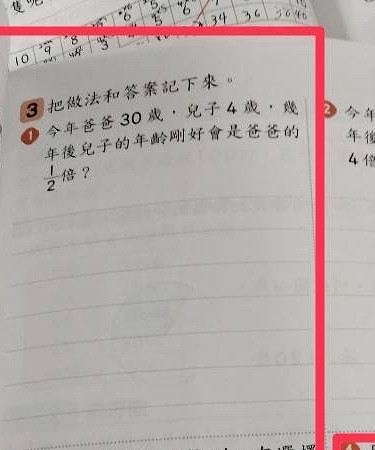 隻呢
34 36
10 9 8
3
3 把做法和答案記下來。
1 今年爸爸30歲,兒子4歲,幾
年後兒子的年齡剛好會是爸爸的
1/2倍?
2 今年
年後
4倍